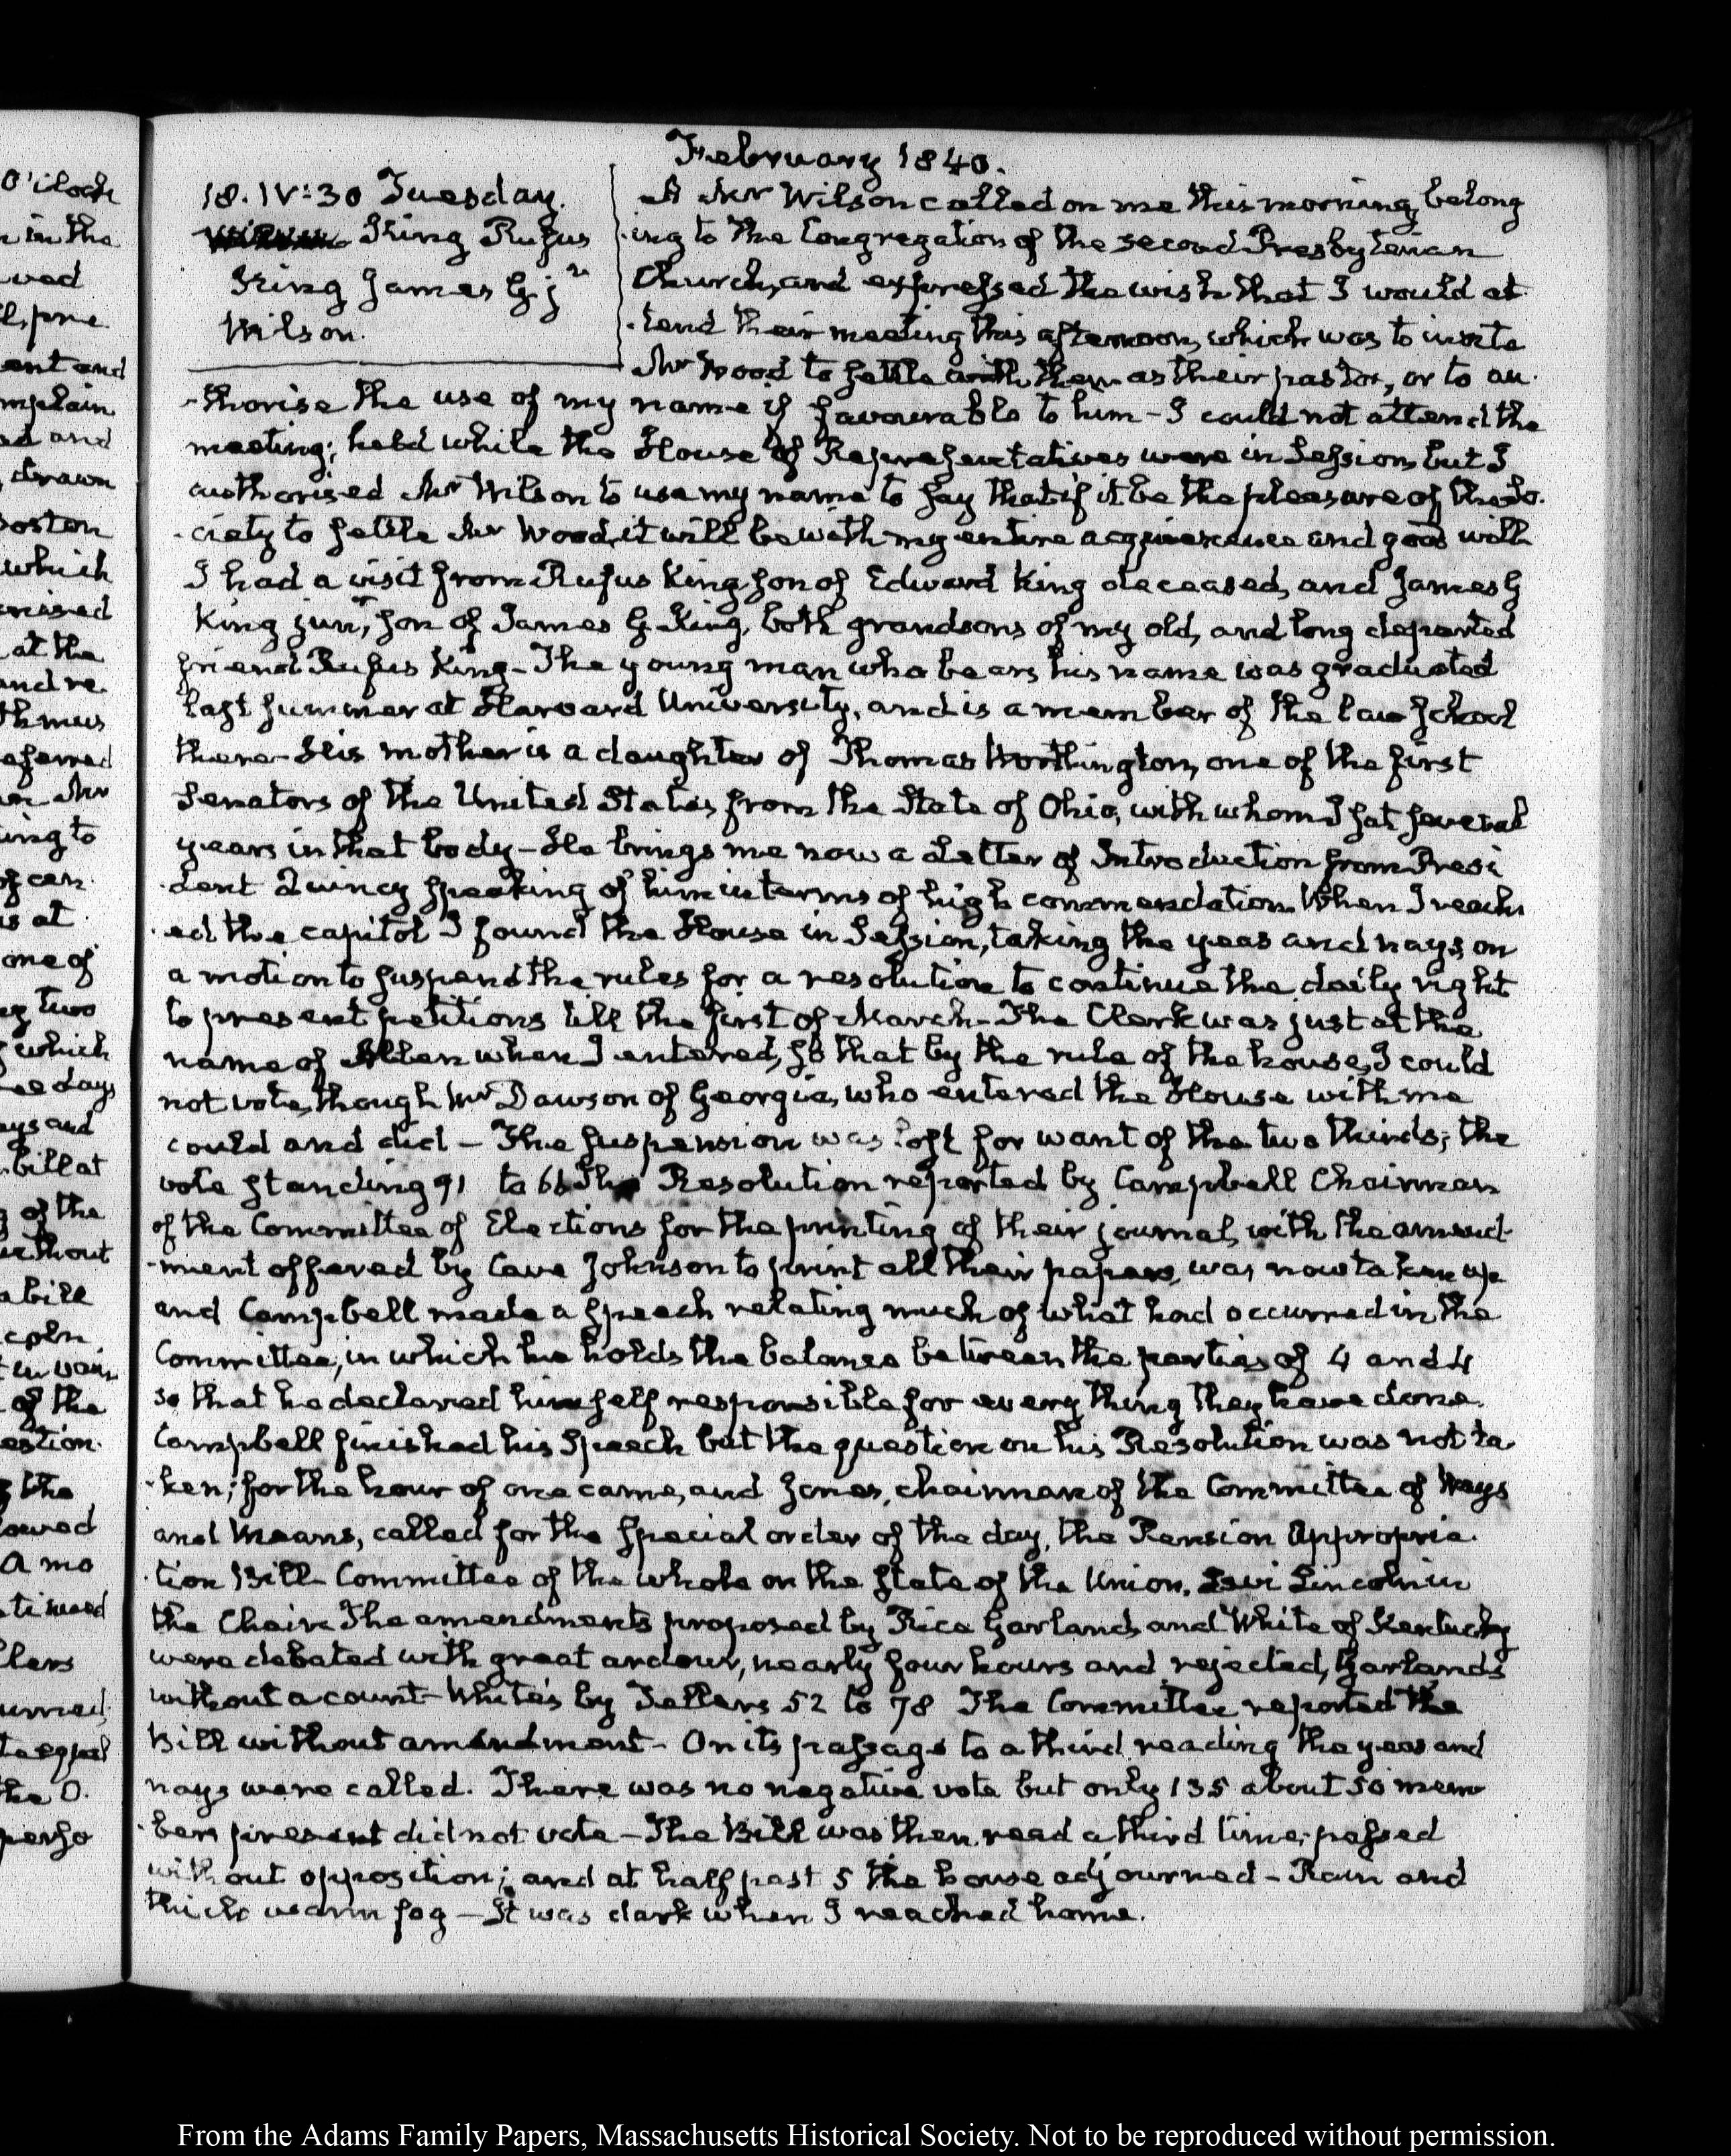 February 1840.
18. IV:30 Tuesday.
King Rufus
King James G jr
Wilson.
A Mr Wilson called on me this morning, belong
ing to the Congregation of the second Presbyterian
Church, and expressed the wish that I would at-
tend their meeting this afternoon, which was to invite
Mr Wood to settle with them as their pastor, or to au-
-thorise the use of my name if favourable to him - I could not attend the
meeting; held while the House of Representatives were in Session, but I
authorised Mr Wilson to use my name to say that if it be the pleasure of the So-
-ciety to settle Mr Wood, it will be with my entire acquiescence and good will
I had a visit from Rufus King, son of Edward King deceased, and James G
King junr, son of James G. King, both grandsons of my old, and long departed
friend Rufus King - The young man who bears his name was graduated
last summer at Harvard University, and is a member of the law School
there - His mother is a daughter of Thomas Worthington, one of the first
Senators of the United States, from the State of Ohio, with whom I sat several
years in that body - He brings me now a Letter of Introduction from Presi
-dent Quincy speaking of him in terms of high commendation. When I reach
ed the capitol I found the House in Session, taking the yeas and nays, on
a motion to suspend the rules for a resolution to continue the daily right
to present petitions till the first of March - The Clerk was just at the
name of Allen when I entered, so that by the rule of the house, I could
not vote, though Mr Dawson of Georgia, who entered the House with me
could and did - The suspension was lost for want of the two thirds; the
vote standing 91 to 66 The Resolution reported by Campbell Chairman
of the Committee of Elections for the printing of their journal, with the amend-
-ment offered by Cave Johnson to print all their papers, was now taken up
and Campbell made a speech relating much of what had occurred in the
Committee, in which he holds the balance between the parties of 4 and 4
so that he declared himself responsible for every thing they have done.
Campbell finished his Speech but the question on his Resolution was not ta-
-ken; for the hour of one came, and Jones, chairman of the Committee of Ways
and Means, called for the special order of the day, the Pension Appropria-
-tion Bill - Committee of the whole on the state of the Union, Levi Lincoln in
the Chair. The amendments proposed by Rice Garland, and White of Kentucky
were debated with great ardour, nearly four hours and rejected, Garland's
without a count - White's by Tellers 52 to 78 The Committee reported the
Bill without amendment - On its passage to a third reading the yeas and
nays were called. There was no negative vote but only 135 about 50 mem
-bers present did not vote - The Bill was then read a third time; passed
without opposition; and at half past 5 the house adjourned - Rain and
thick warm fog - It was dark when I reached home.
From the Adams Family Papers, Massachusetts Historical Society. Not to be reproduced without permission.